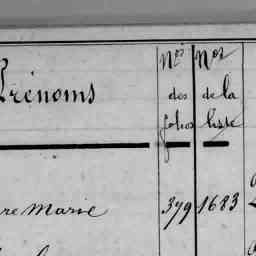 Prénoms
Nos des folios
Nos de la liste
re Marie 379 1683